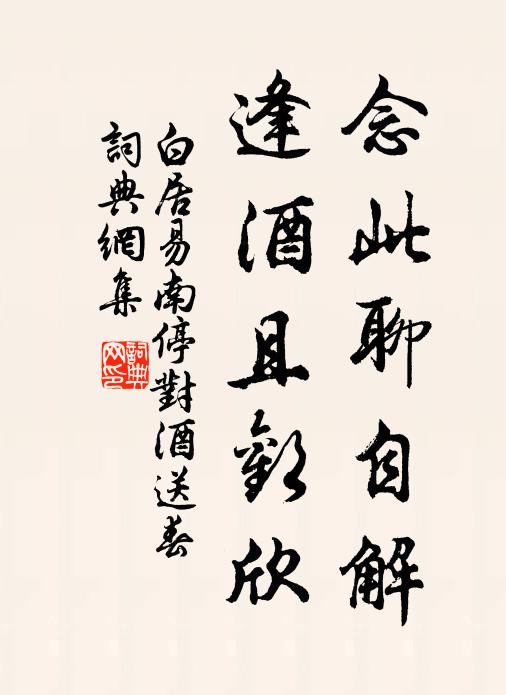 念此聊自解
逢酒且歡欣
白居易南停對酒送春
詞典網集
詞典网印